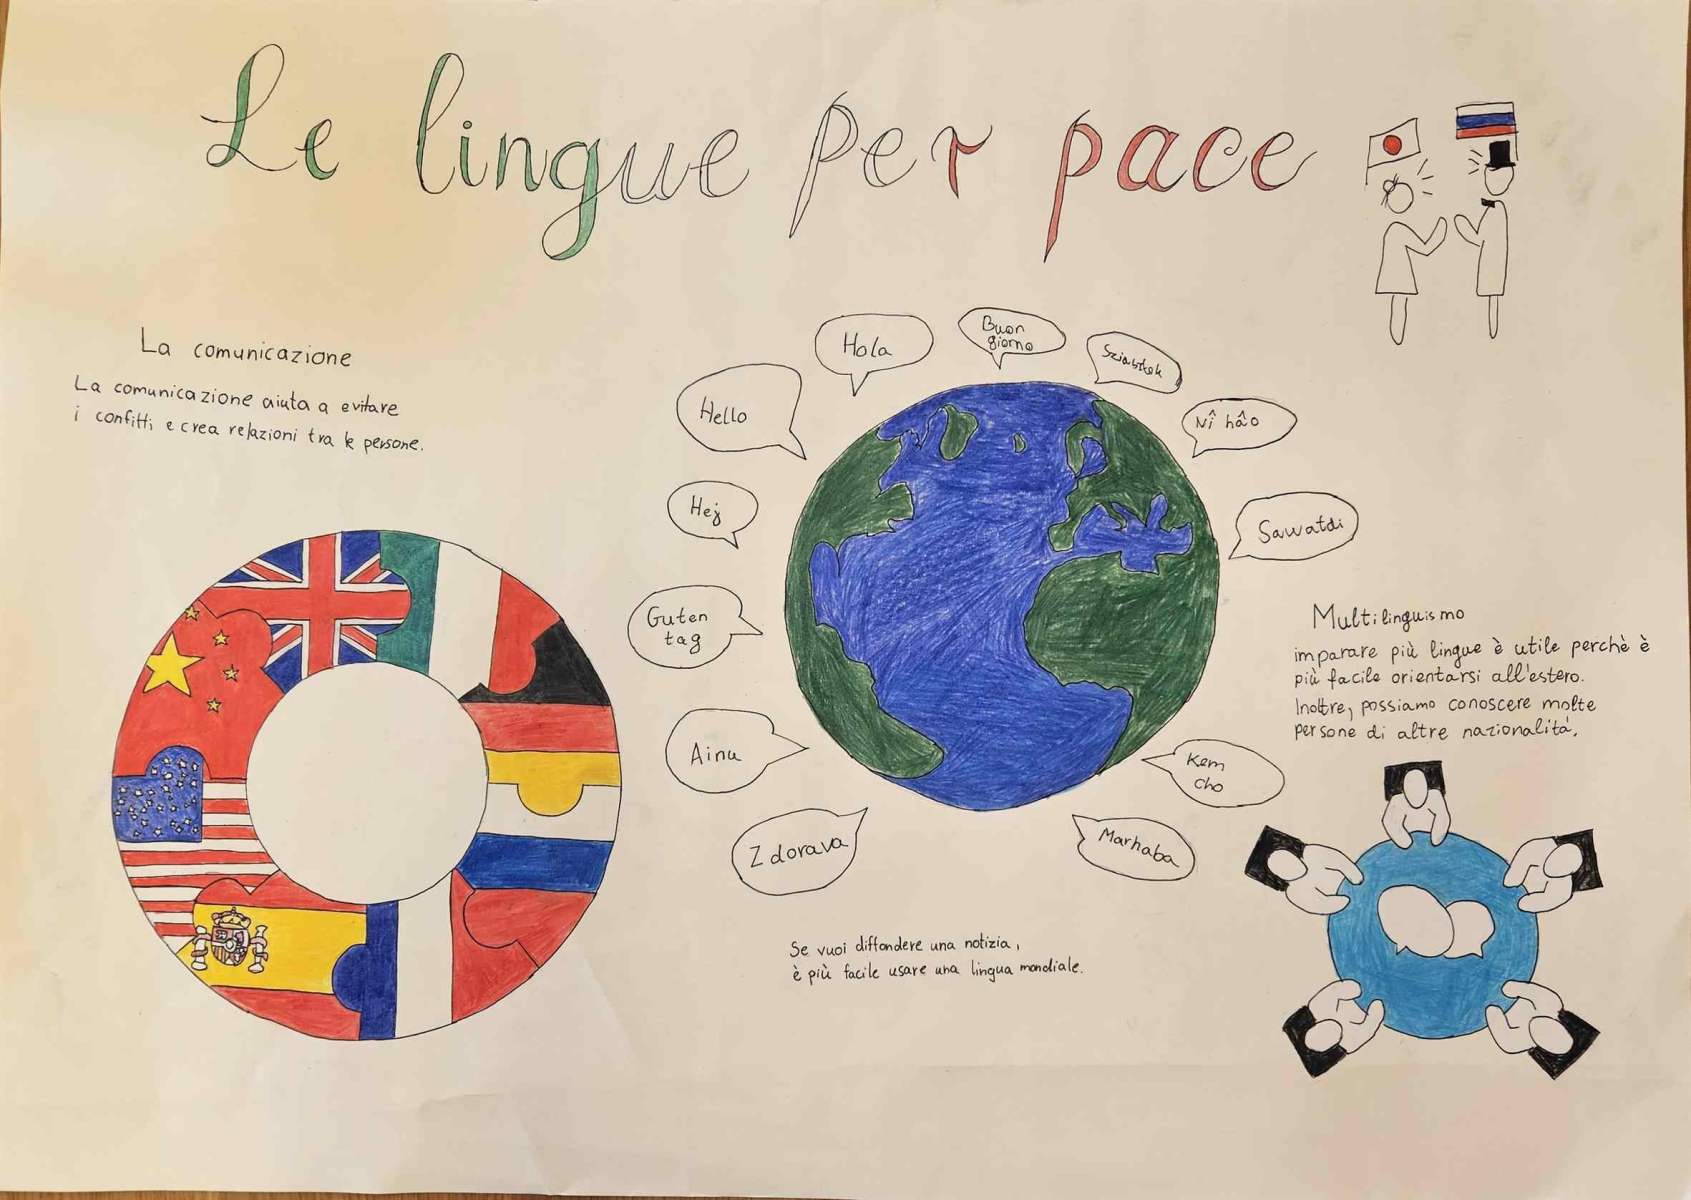 Le lingue per pace
La comunicazione
La comunicazione aiuta a evitare
i confitti, e crea relazioni tra le persone.
Hola
Buon
giorno
Sziasztok
Hello
Nî hâo
Hej
Sawatdi
Guten
tag
Ainu
Kem
cho
Zdorava
Marhaba
Se vuoi diffondere una notizia,
è più facile usare una lingua mondiale.
Multilinguismo
imparare più lingue è utile perchè è
più facile orientarsi all'estero.
Inoltre, possiamo conoscere molte
persone di altre nazionalità.